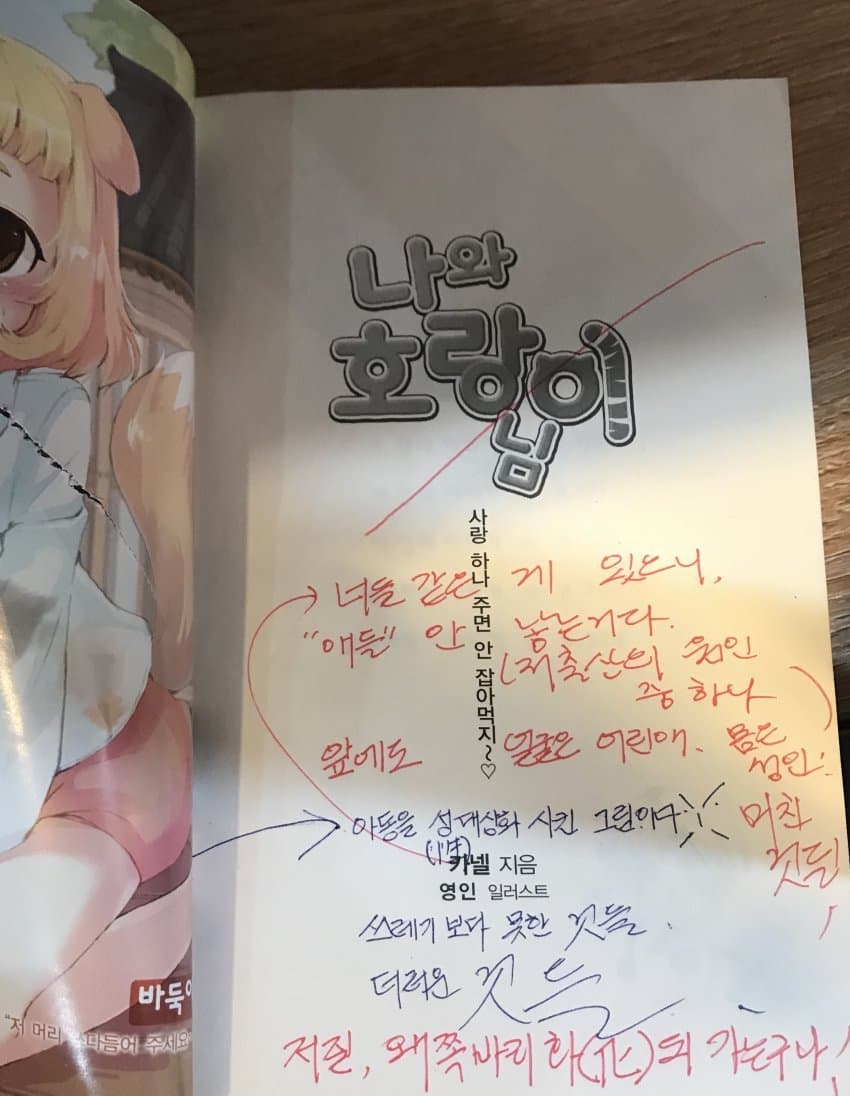 나와
호랑이
님
사랑 하나 주면 안 잡아먹지~♡
너들 같은 게 있으니,
"애들" 안 낳는거다.
(저출산의 원인
중 하나)
앞에도 얼굴은 어린애. 몸은
성인!
미친
것들!
아동을 성대상화 시킨 그림이다
(性)
카넬 지음
영인 일러스트
쓰레기 보다 못한 것들.
더러운 것들
저질, 왜쪽바리화(化)되 가는구나!
바둑이
"저 머리 다듬어 주세요